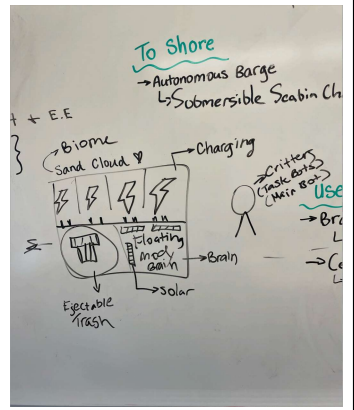 To Shore
→ Autonomous Barge
↳ Submersible Seabin Ch
t + E.E
Biome
Sand Cloud
→ Charging
Critters
(Task Bots)
(Main Bot)
Use
→ Bra
→ Co
Floating
Mody
Brain
→ Brain
→ Solar
Ejectable
Trash